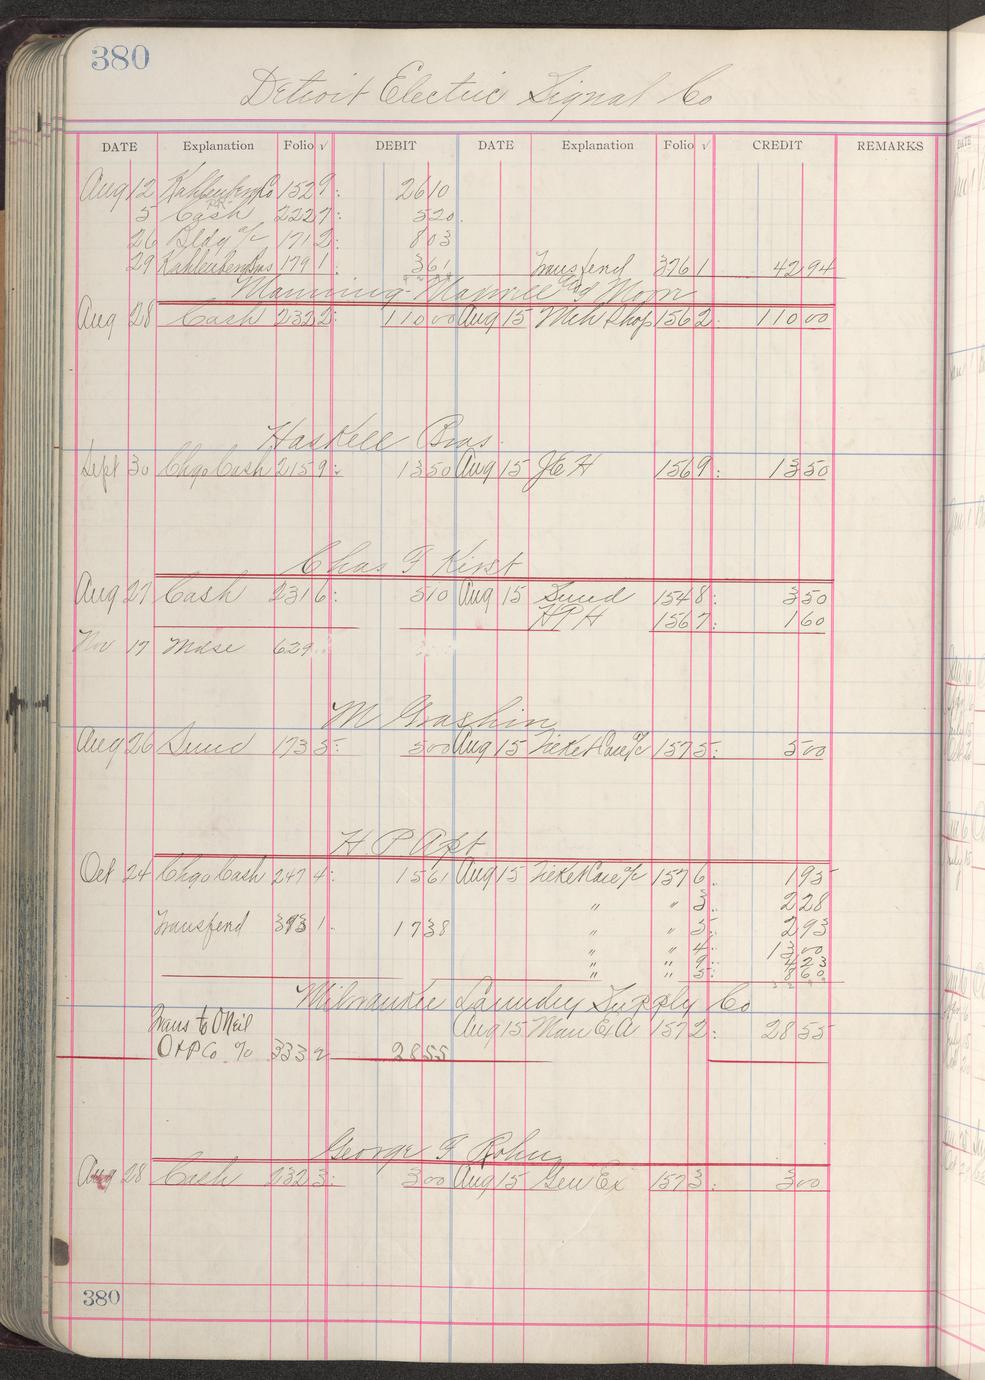 380
Detroit Electric Signal Co
DATE Explanation Folio √ DEBIT DATE Explanation Folio √ CREDIT REMARKS
Aug 12 Co 152 9 : 26 10
5 Cash 222 7 : 5 20
26 Bldg a/c 171 2 : 8 03
29 Kahlenberg Bros 179 1 : 3 61 Transferd 376 1 42 94
Manning Maxwell and Moore
Aug 28 Cash 232 2 : 110 00 Aug 15 Mch Shop 156 2 : 110 00
Haskell Bros
Sept 30 Chgo Cash 215 9 : 13 50 Aug 15 J E H 156 9 : 13 50
Chas F Kirst
Aug 27 Cash 231 6 : 5 10 Aug 15 Sund 154 8 : 3 50
H P H 156 7 : 1 60
Nov 17 Mdse 629
M Grashin
Aug 26 Sund 173 5 : 5 00 Aug 15 Ticket Care a/c 157 5 : 5 00
H P Apt
Oct 24 Chgo Cash 247 4 : 15 61 Aug 15 Ticket Care a/c 157 6 : 1 95
" " 3 : 2 28
Transferd 393 1 : 17 38 " " 5 : 2 93
" " 4 : 13 00
" " 9 : 4 23
" " 5 : 8 60
Milwaukee Laundry Supply Co
Aug 15 Man Ex A 157 2 : 28 55
Trans to O'Neil
O & P Co a/c 333 2 28 55
George F Rohn
Aug 28 Cash 232 3 : 3 00 Aug 15 Gen Ex 157 3 : 3 00
380